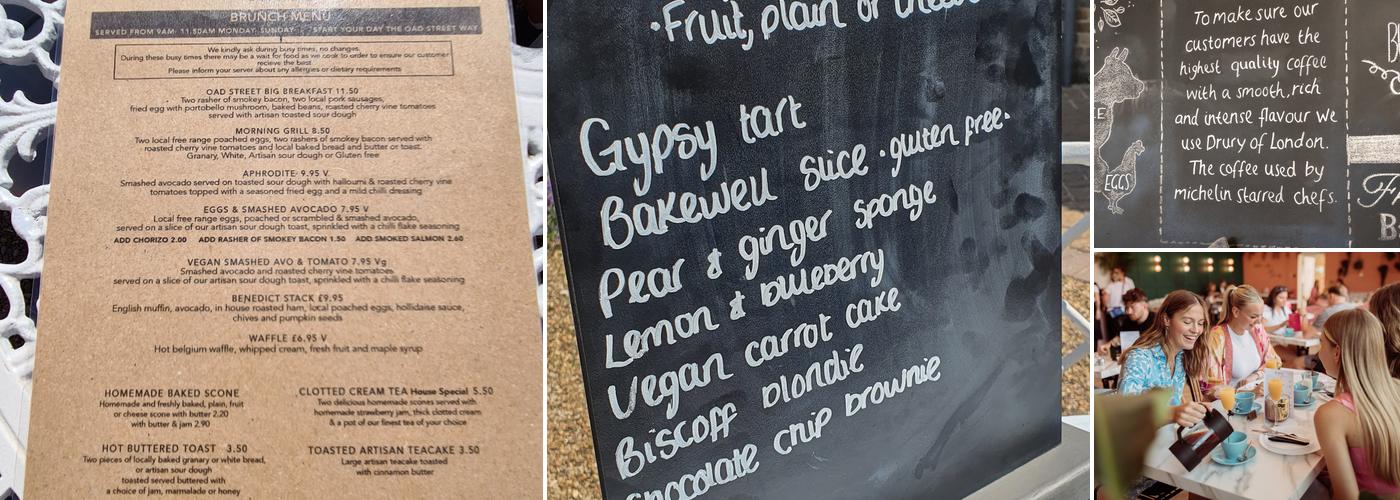 BRUNCH MENU
SERVED FROM 9AM- 11.30AM MONDAY- SUNDAY START YOUR DAY THE OAD STREET WAY
We kindly ask during busy times, no changes.
During these busy times there may be a wait for food as we cook to order to ensure our customer
recieve the best
Please inform your server about any allergies or dietary requirements
OAD STREET BIG BREAKFAST 11.50
Two rasher of smokey bacon, two local pork sausages,
fried egg with portobello mushroom, baked beans, roasted cherry vine tomatoes
served with artisan toasted sour dough
MORNING GRILL 8.50
Two local free range poached eggs, two rashers of smokey bacon served with
roasted cherry vine tomatoes and local baked bread and butter or toast.
Granary, White, Artisan sour dough or Gluten free
APHRODITE 9.95 V
Smashed avocado served on toasted sour dough with halloumi & roasted cherry vine
tomatoes topped with a seasoned fried egg and a mild chilli dressing
EGGS & SMASHED AVOCADO 7.95 V
Local free range eggs, poached or scrambled & smashed avocado,
served on a slice of our artisan sour dough toast, sprinkled with a chilli flake seasoning
ADD CHORIZO 2.00 ADD RASHER OF SMOKEY BACON 1.50 ADD SMOKED SALMON 2.60
VEGAN SMASHED AVO & TOMATO 7.95 Vg
Smashed avocado and roasted cherry vine tomatoes
served on a slice of our artisan sour dough toast, sprinkled with a chilli flake seasoning
BENEDICT STACK £9.95
English muffin, avocado, in house roasted ham, local poached eggs, hollidaise sauce,
chives and pumpkin seeds
WAFFLE £6.95 V
Hot belgium waffle, whipped cream, fresh fruit and maple syrup
HOMEMADE BAKED SCONE
Homemade and freshly baked, plain, fruit
or cheese scone with butter 2.20
with butter & jam 2.90
CLOTTED CREAM TEA House Special 5.50
Two delicious homemade scones served with
homemade strawberry jam, thick clotted cream
& a pot of our finest tea of your choice
HOT BUTTERED TOAST 3.50
Two pieces of locally baked granary or white bread,
or artisan sour dough
toasted served buttered with
a choice of jam, marmalade or honey
TOASTED ARTISAN TEACAKE 3.50
Large artisan teacake toasted
with cinnamon butter
·Fruit, plain or
Gypsy tart
Bakewell slice ·gluten free·
Pear & ginger sponge
Lemon & blueberry
Vegan carrot cake
Biscoff blondie
chocolate chip brownie
To make sure our
customers have the
highest quality coffee
with a smooth, rich
and intense flavour we
use Drury of London.
The coffee used by
michelin starred chefs.
EGGS